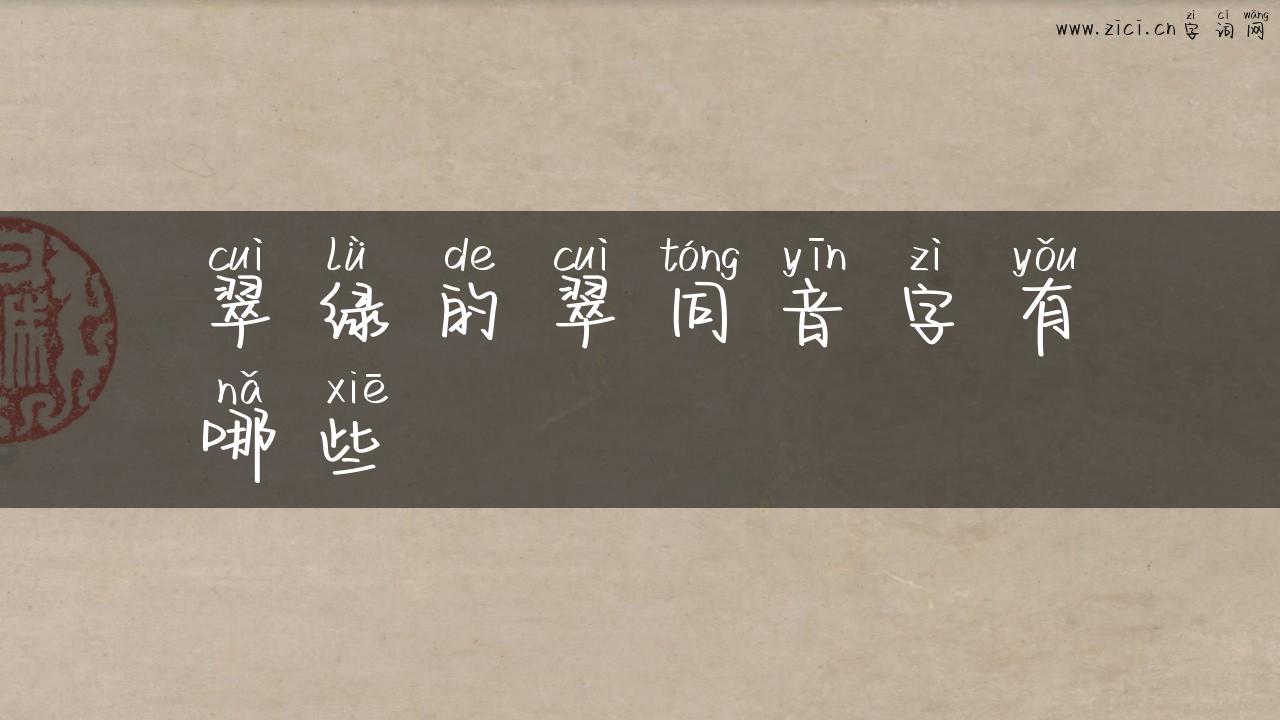 zì cí wǎng
www.zici.cn字词网
cuì lǜ de cuì tóng yīn zì yǒu
翠绿的翠同音字有
nǎ xiē
哪些